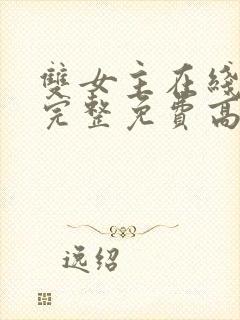 雙女主在綫
完整免費高
逸绍